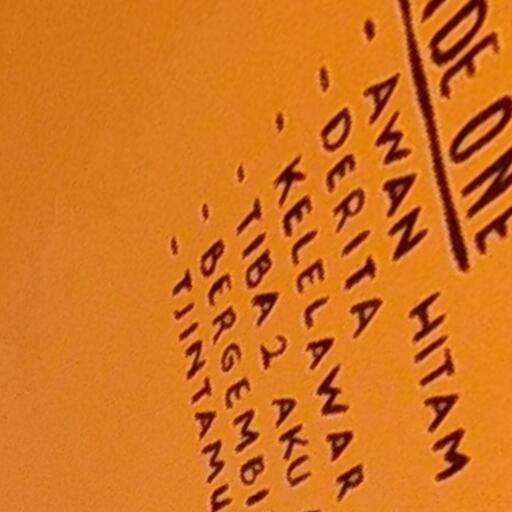 IDE ONE
- AWAN HITAM
- DERITA
- KELELAWAR
- TIBA 2 AKU
- BERGEMBI
- TIINTAMU